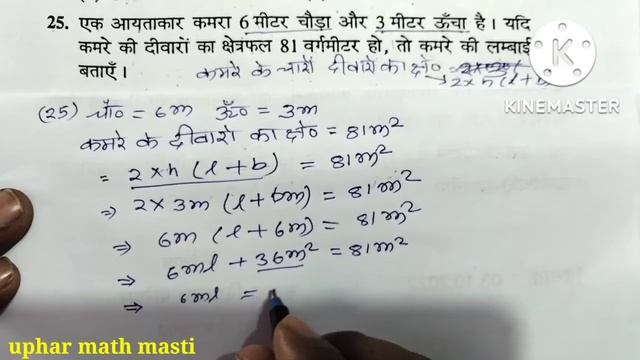 25. एक आयताकार कमरा 6 मीटर चौड़ा और 3 मीटर ऊँचा है। यदि
कमरे की दीवारों का क्षेत्रफल 81 वर्गमीटर हो, तो कमरे की लम्बाई
बताएँ।
कमरे के चारों दीवारों का क्षे०
→ 2×h(l+b)
KINEMASTER
(25) चौ० = 6m ऊँ० = 3m
कमरे के दीवारों का क्षे० = 81m²
= 2×h (l+b) = 81m²
⇒ 2×3m (l+6m) = 81m²
⇒ 6m (l+6m) = 81m²
⇒ 6ml + 36m² = 81m²
⇒ 6ml =
uphar math masti